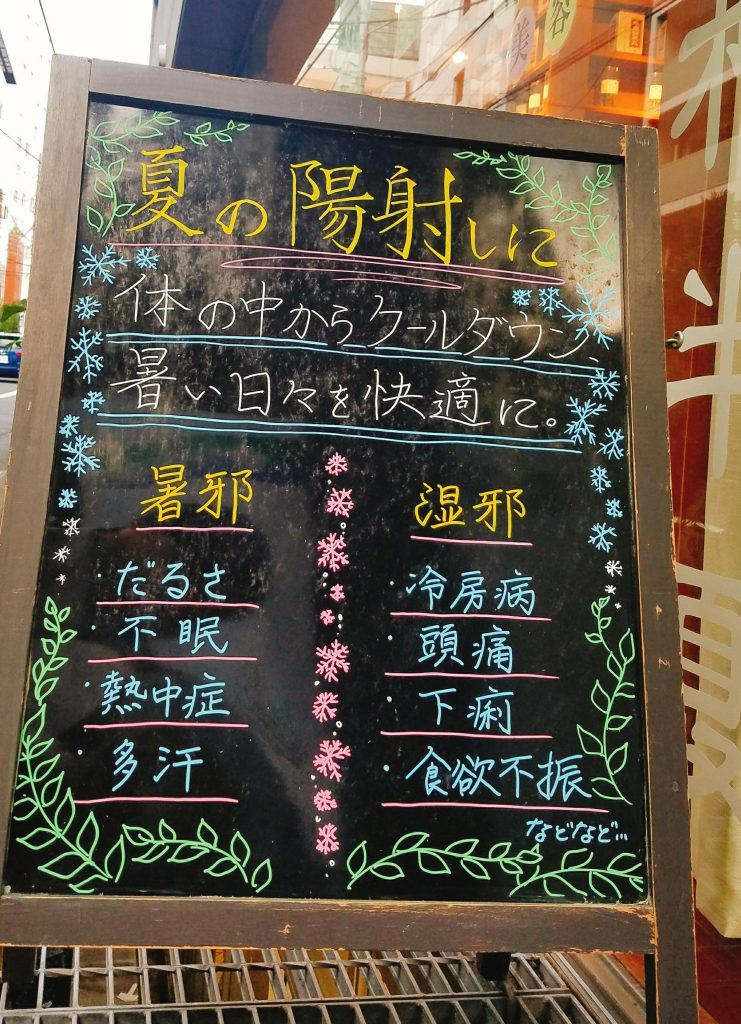 夏の陽射しに
体の中からクールダウン、
暑い日々を快適に。
暑邪
・だるさ
・不眠
・熱中症
・多汗
湿邪
・冷房病
・頭痛
・下痢
・食欲不振
などなど…
谷
美